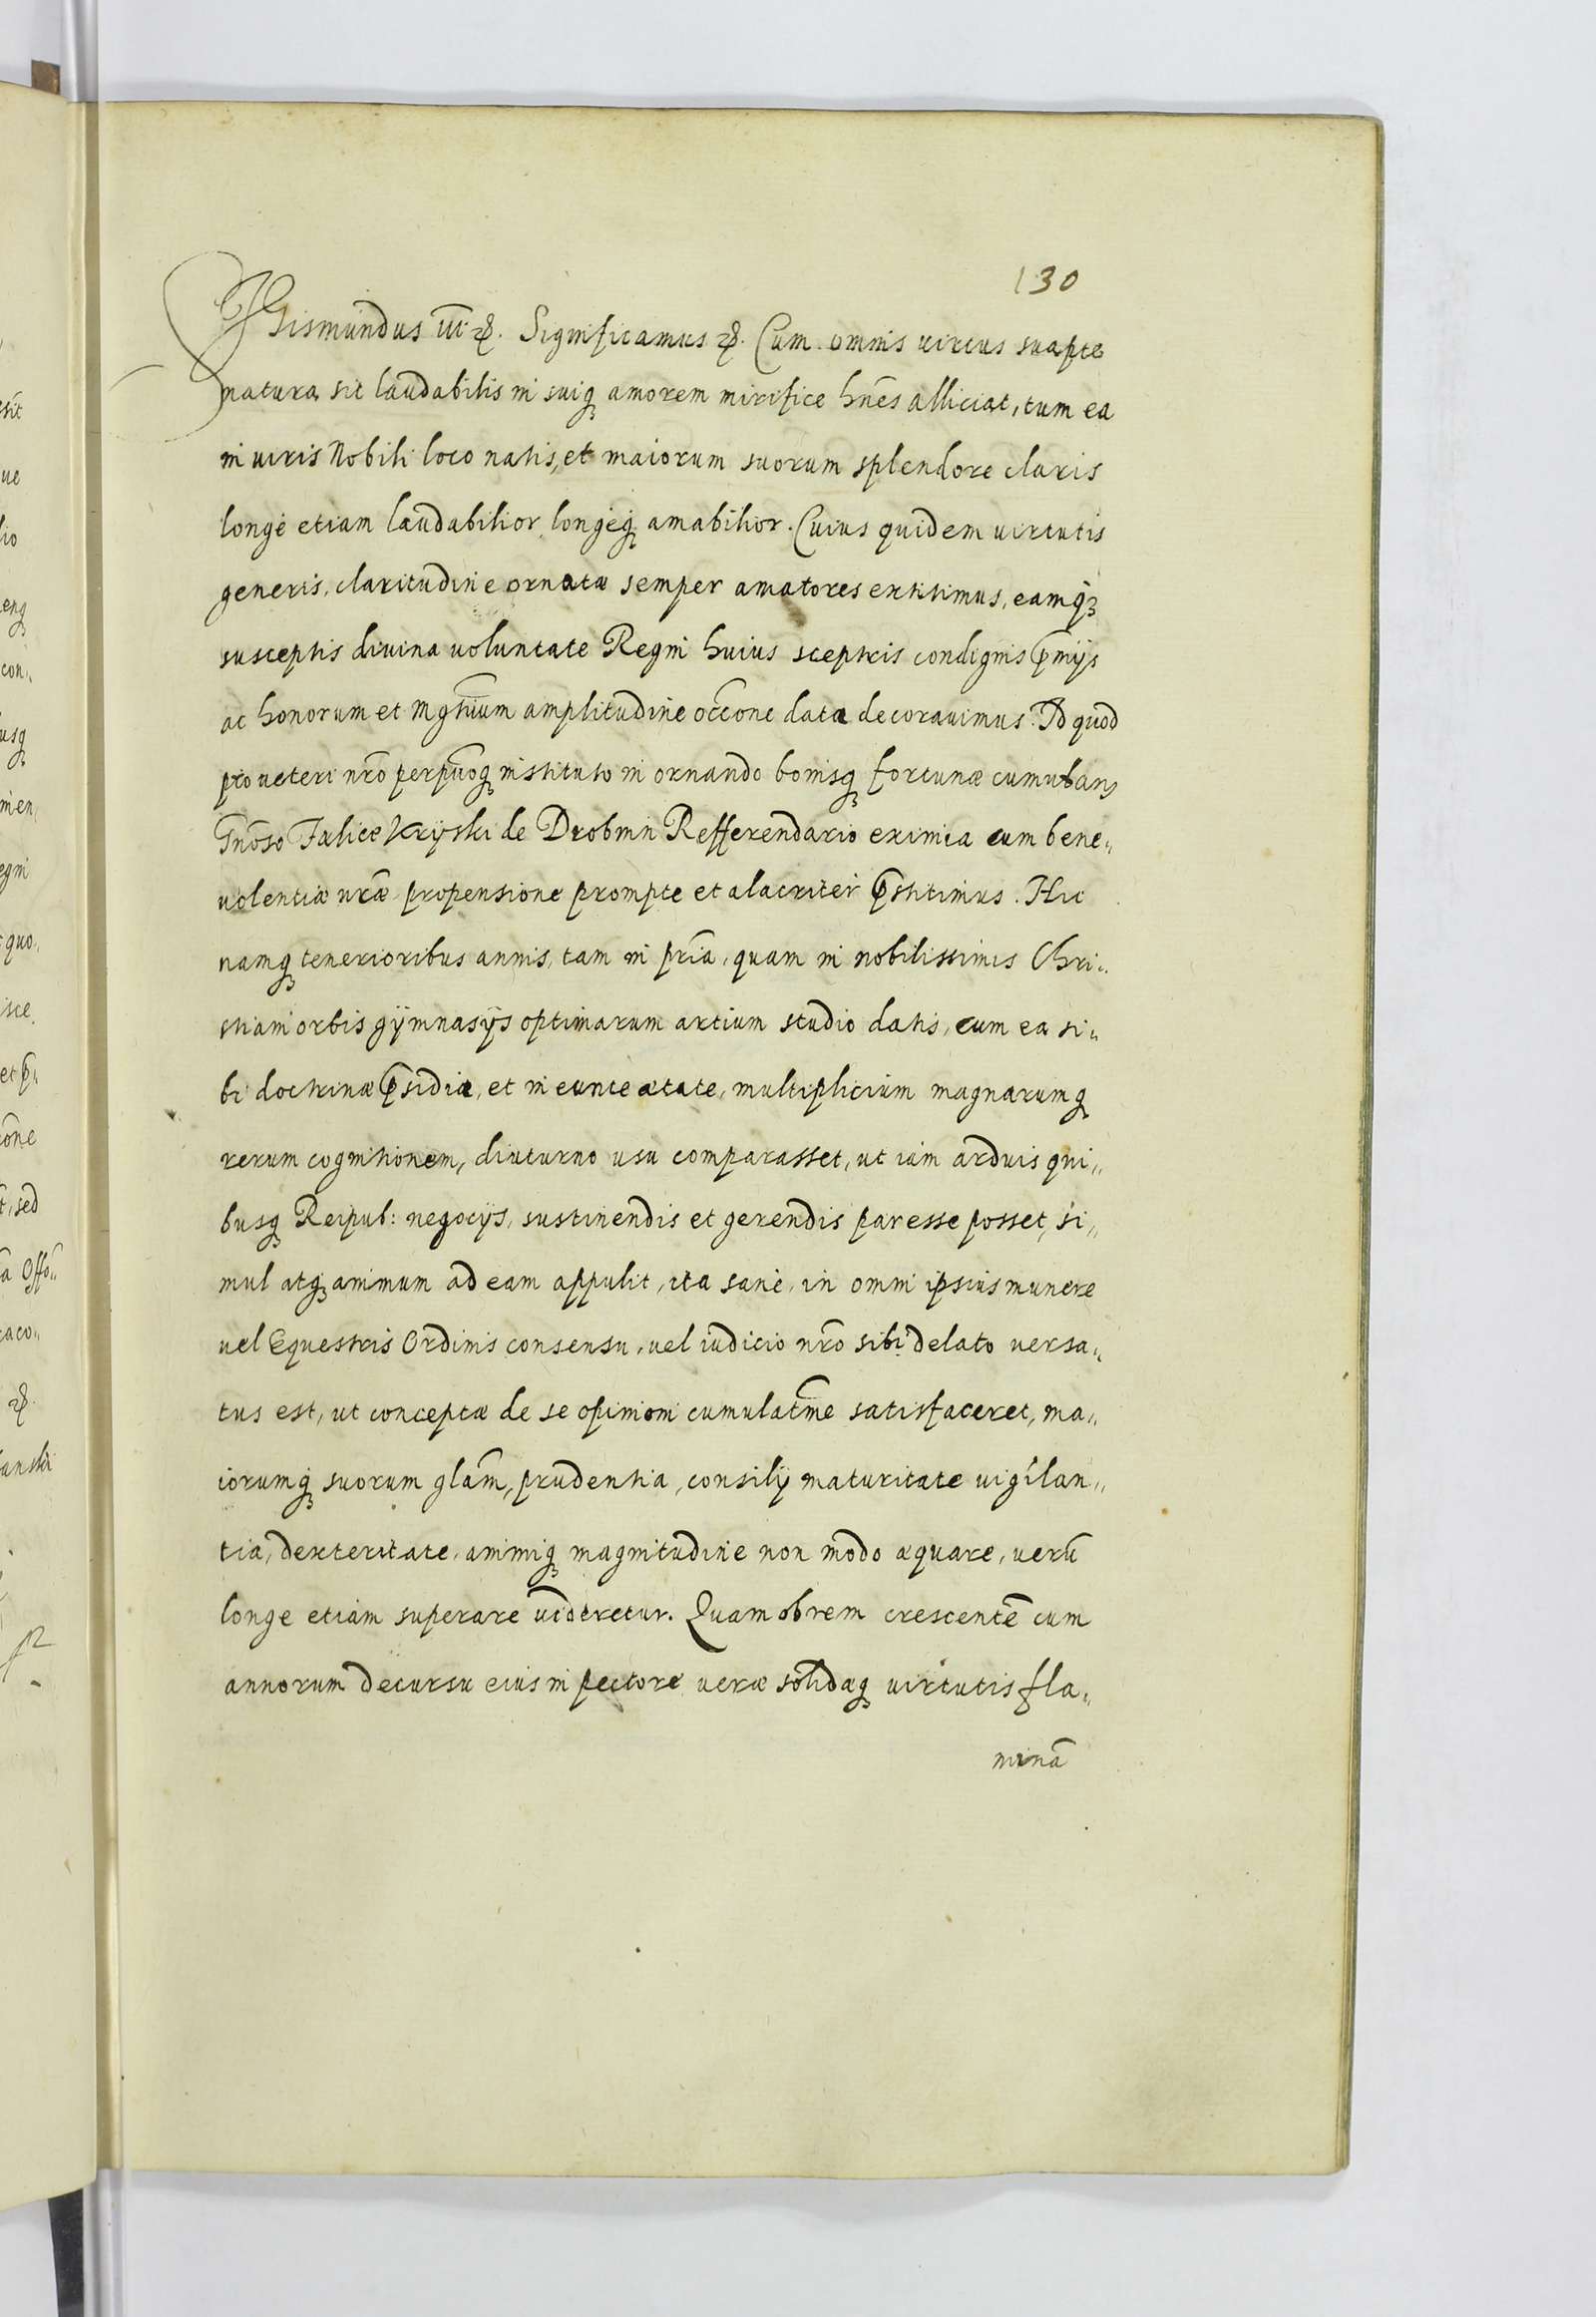 130
Sigismundus iii ꝛc. Significamus ꝛc. Cum omnis virtus suapte
natura sit laudabilis in suiq; amorem mirifice hnēs alliciat, tum ea
in viris Nobili loco natis, et maiorum suorum splendore claris
longè etiam laudabilior longèq; amabilior. Cuius quidem virtutis
generis, claritudine ornatæ semper amatores extitimus, eamq;
susceptis divina voluntate Regni huius sceptris condignis p̃mijs
ac honorum et Mgr̃tuum amplitudine occc̃one data decoravimus. Id quod
pro veteri nr̃o perpũoq; instituto in ornando bonisq; fortunæ cumulan,
Gnõso Fælice Kryski de Drobnin Refferendario eximia cum bene„
volentiæ nr̃æ propensione prompte et alacriter p̃stitimus. Hic
namq; tenerioribus annis, tam in pr̃ia, quam in nobilissimis Chri„
stiani orbis gymnasijs optimarum artium studio datis, cum ea si„
bi doctrinæ p̃sidia, et in eunte ætate, multiplicium magnarumq;
rerum cognitionem, diuturno usu comparasset, ut iam arduis qui„
busq; Reipub: negocijs, sustinendis et gerendis par esse posset, si„
mul atq; animum ad eam appulit, ita sanè, in omni ipsius munere
vel Equestris Ordinis consensu, vel iudicio nr̃o sibi delato versa„
tus est, ut conceptæ de se opinioni cumulatm̃e satisfaceret, ma„
iorumq; suorum glãm, prudentia, consilij maturitate vigilan„
tia, dexteritate, animiq; magnitudine non modo æquare, verũ
longe etiam superare videretur. Quam obrem crescentẽ cum
annorum decursu eius in pectore veræ solidæq; virtutis fla„
minã